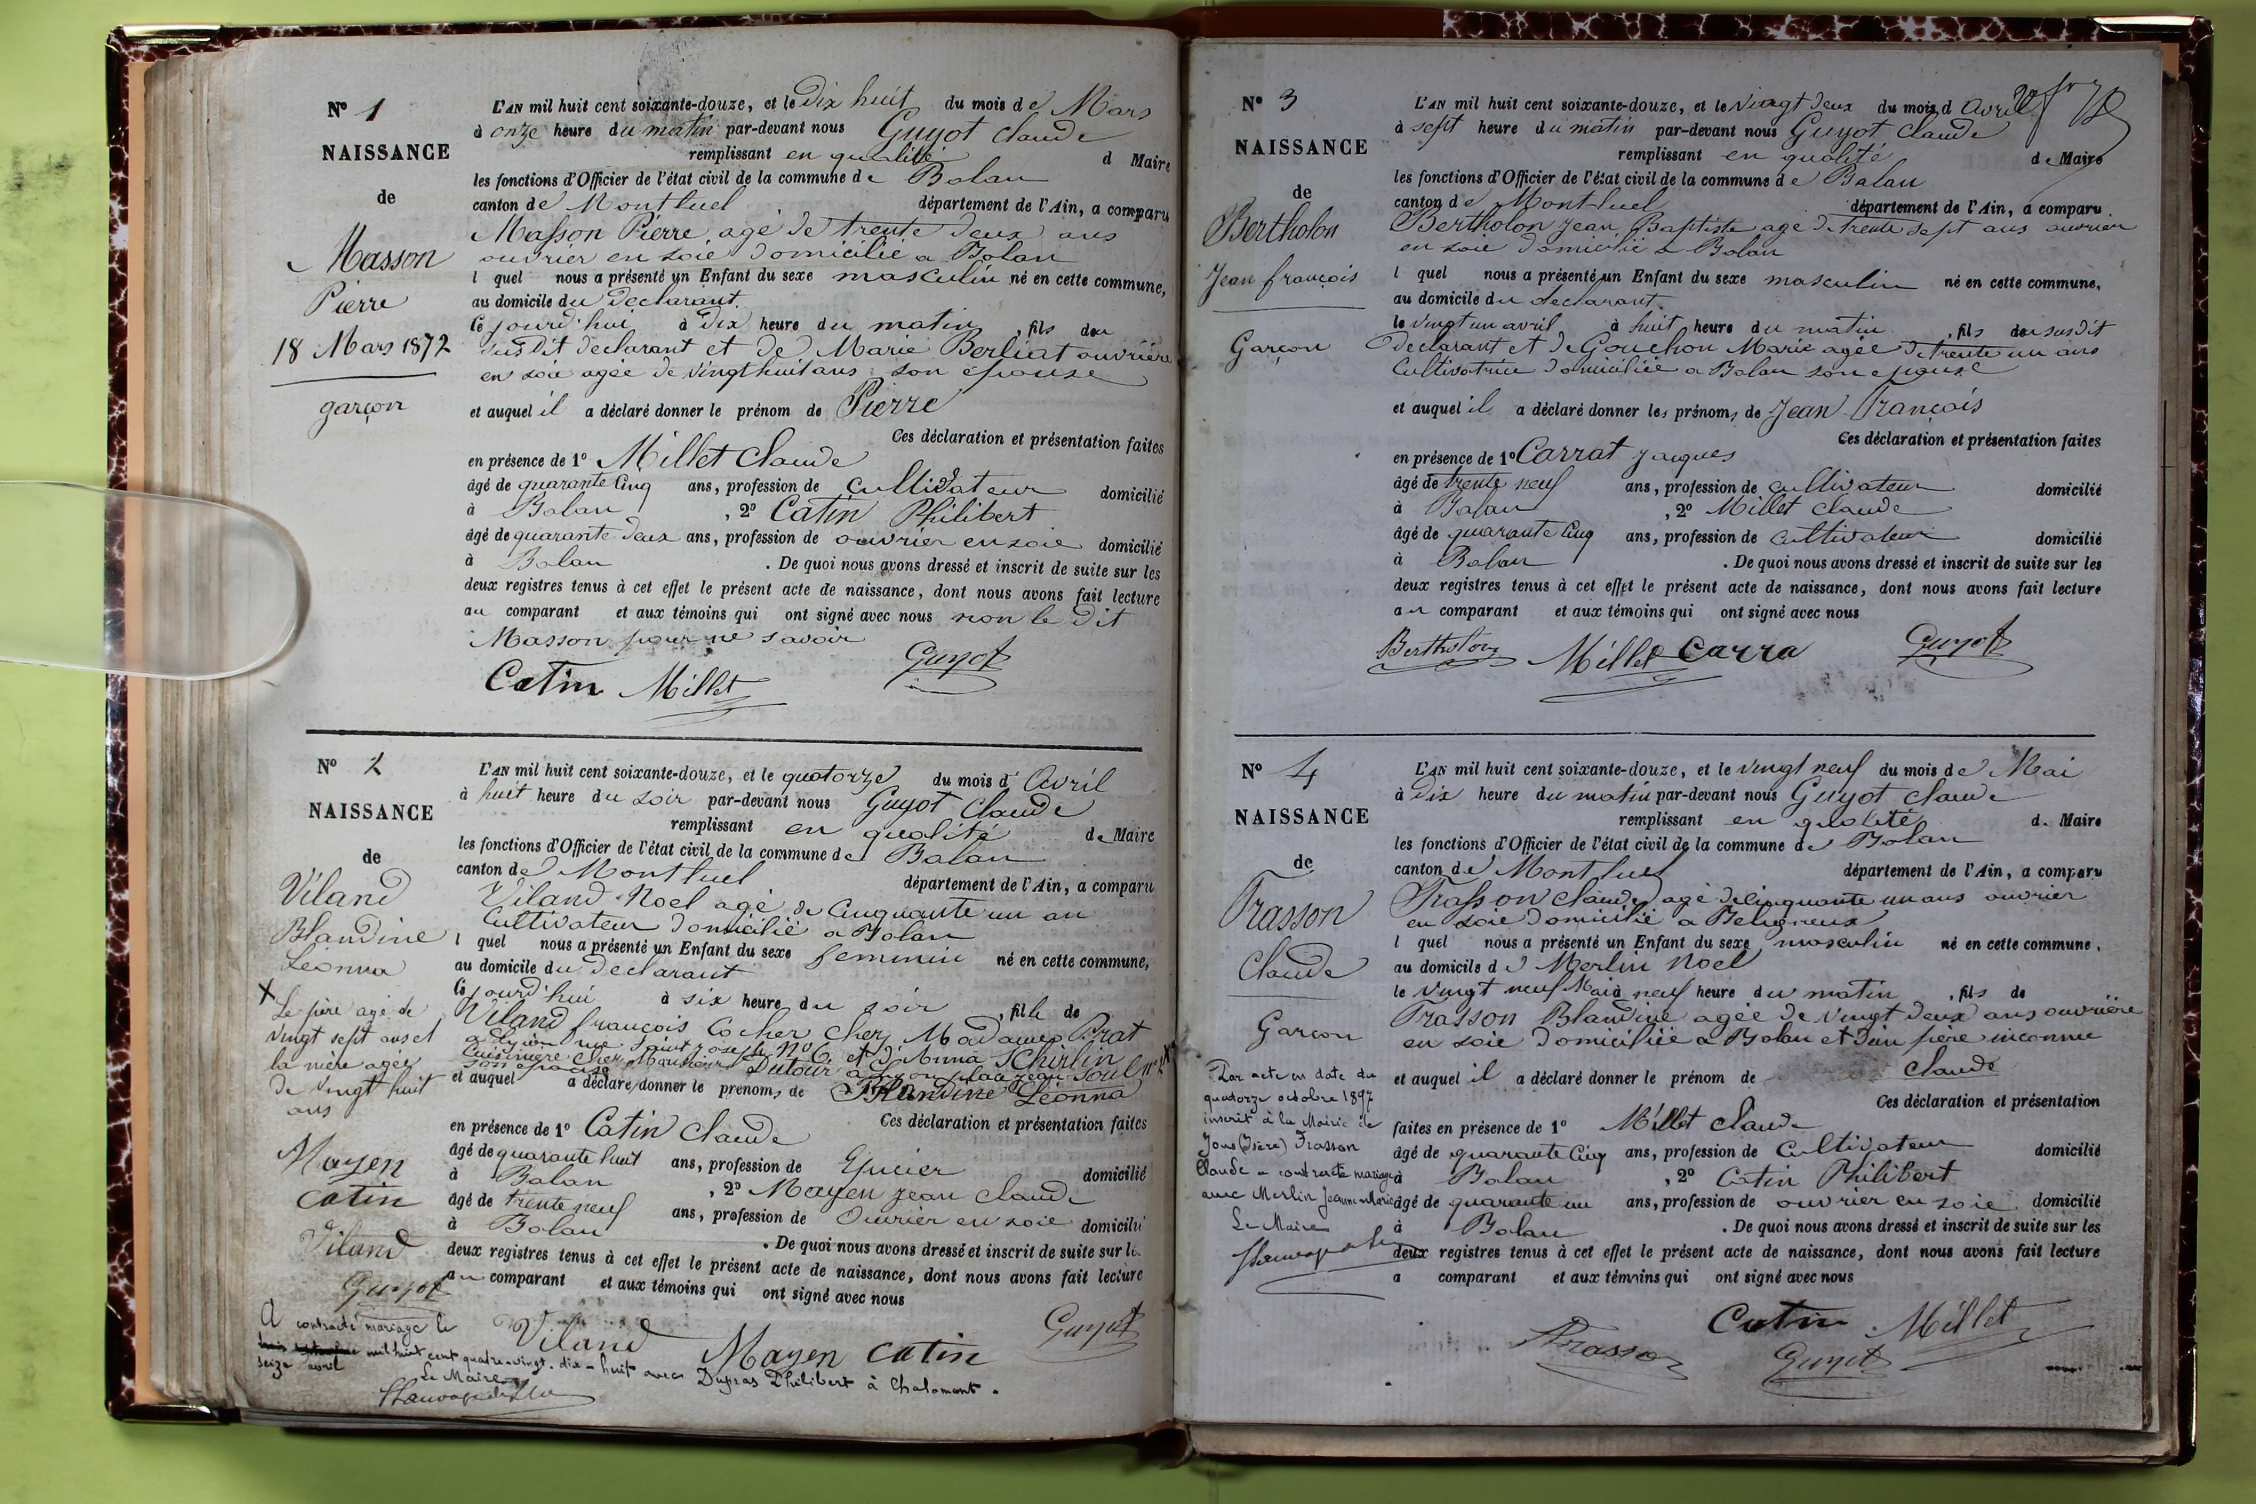 N° 1
NAISSANCE
de
Masson
Pierre
18 Mars 1872
garçon
L'AN mil huit cent soixante-douze, et le Dix huit du mois de Mars
à onze heure du matin par-devant nous Guyot Claude
remplissant en qualité d Maire
les fonctions d'Officier de l'état civil de la commune de Balan
canton de Montluel département de l'Ain, a comparu
Masson Pierre agé de trente deux ans
ouvrier en soie domicilié a Balan
l quel nous a présenté un Enfant du sexe masculin né en cette commune,
au domicile du declarant
Ce jourd'hui à Dix heure du matin, fils du
susdit declarant et de Marie Berliat ouvrière
en soie agée de vingt huit ans son épouse
et auquel il a déclaré donner le prénom de Pierre
Ces déclaration et présentation faites
en présence de 1° Millet Claude
âgé de quarante cinq ans, profession de cultivateur domicilié
à Balan, 2° Catin Philibert
âgé de quarante deux ans, profession de ouvrier en soie domicilié
à Balan. De quoi nous avons dressé et inscrit de suite sur les
deux registres tenus à cet effet le présent acte de naissance, dont nous avons fait lecture
au comparant et aux témoins qui ont signé avec nous non le dit
Masson pour ne savoir
Catin Millet Guyot
N° 2
NAISSANCE
de
Viland
Blandine
Leonna
X Le père agé de
vingt sept ans et
la mère agée
de vingt huit
ans
Mayen
Catin
Viland
Guyot
L'AN mil huit cent soixante-douze, et le quatorze du mois d'Avril
à huit heure du soir par-devant nous Guyot Claude
remplissant en qualité de Maire
les fonctions d'Officier de l'état civil de la commune de Balan
canton de Montluel département de l'Ain, a comparu
Viland Noel agé de Cinquante un an
Cultivateur domicilié a Balan
l quel nous a présenté un Enfant du sexe feminin né en cette commune,
au domicile du declarant
Ce jourd'hui à six heure du soir, fille de
Viland françois Cocher chez Madame Prat
a Lyon rue Saint joseph N° 6 et de Anna Schirlin
son épouse Cuisinière chez Monsieur Dutour a Lyon
et auquel a déclaré donner le prénoms de Blandine Leonna
Ces déclaration et présentation faites
en présence de 1° Catin Claude
âgé de quarante huit ans, profession de Epicier domicilié
à Balan, 2° Mayen jean Claude
âgé de trente neuf ans, profession de Ouvrier en soie domicilié
à Balan. De quoi nous avons dressé et inscrit de suite sur les
deux registres tenus à cet effet le présent acte de naissance, dont nous avons fait lecture
au comparant et aux témoins qui ont signé avec nous
Viland Mayen Catin Guyot
A contracté mariage le
seize avril mil huit cent quatre-vingt-dix-huit avec Dupras Philibert à Chalamont.
Le Maire
N° 3
NAISSANCE
de
Bertholon
Jean françois
Garçon
L'AN mil huit cent soixante-douze, et le vingt deux du mois d avril
à sept heure du matin par-devant nous Guyot Claude
remplissant en qualité de Maire
les fonctions d'Officier de l'état civil de la commune de Balan
canton de Montluel département de l'Ain, a comparu
Bertholon Jean Baptiste agé de trente sept ans ouvrier
en soie domicilié a Balan
l quel nous a présenté un Enfant du sexe masculin né en cette commune,
au domicile du declarant
le vingt un avril à huit heure du matin, fils du susdit
declarant et de Gouchon Marie agée de trente un ans
Cultivatrice domiciliée a Balan son epouse
et auquel il a déclaré donner les prénoms de Jean François
Ces déclaration et présentation faites
en présence de 1° Carrat Jacques
âgé de trente neuf ans, profession de cultivateur domicilié
à Balan, 2° Millet Claude
âgé de quarante cinq ans, profession de cultivateur domicilié
à Balan. De quoi nous avons dressé et inscrit de suite sur les
deux registres tenus à cet effet le présent acte de naissance, dont nous avons fait lecture
au comparant et aux témoins qui ont signé avec nous
Bertholon Millet Carra Guyot
N° 4
NAISSANCE
de
Trasson
Claude
Garçon
Par acte en date du
quatorze octobre 1897
inscrit à la Mairie de
Jons (Isère) Trasson
Claude a contracté mariage
avec Merlin Jeanne Marie
Le Maire
L'AN mil huit cent soixante-douze, et le vingt neuf du mois de Mai
à Dix heure du matin par-devant nous Guyot Claude
remplissant en qualité de Maire
les fonctions d'Officier de l'état civil de la commune de Balan
canton de Montluel département de l'Ain, a comparu
Trasson Claude agé de cinquante un ans ouvrier
en soie domicilié a Béligneux
l quel nous a présenté un Enfant du sexe masculin né en cette commune,
au domicile de Merlin Noel
le vingt neuf Mai à neuf heure du matin, fils de
Trasson Blandine agée de vingt deux ans ouvrière
en soie domiciliée a Balan et d'un père inconnu
et auquel il a déclaré donner le prénom de Claude
Ces déclaration et présentation
faites en présence de 1° Millet Claude
âgé de quarante cinq ans, profession de Cultivateur domicilié
à Balan, 2° Catin Philibert
âgé de quarante un ans, profession de ouvrier en soie domicilié
à Balan. De quoi nous avons dressé et inscrit de suite sur les
deux registres tenus à cet effet le présent acte de naissance, dont nous avons fait lecture
a comparant et aux témoins qui ont signé avec nous
Trasson Catin Millet
Guyot